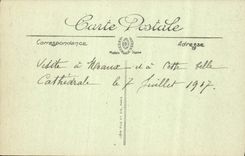 Carte Postale
Correspondance
Adresse
Visite à Meaux et à cette belle
Cathédrale le 7 Juillet 1917